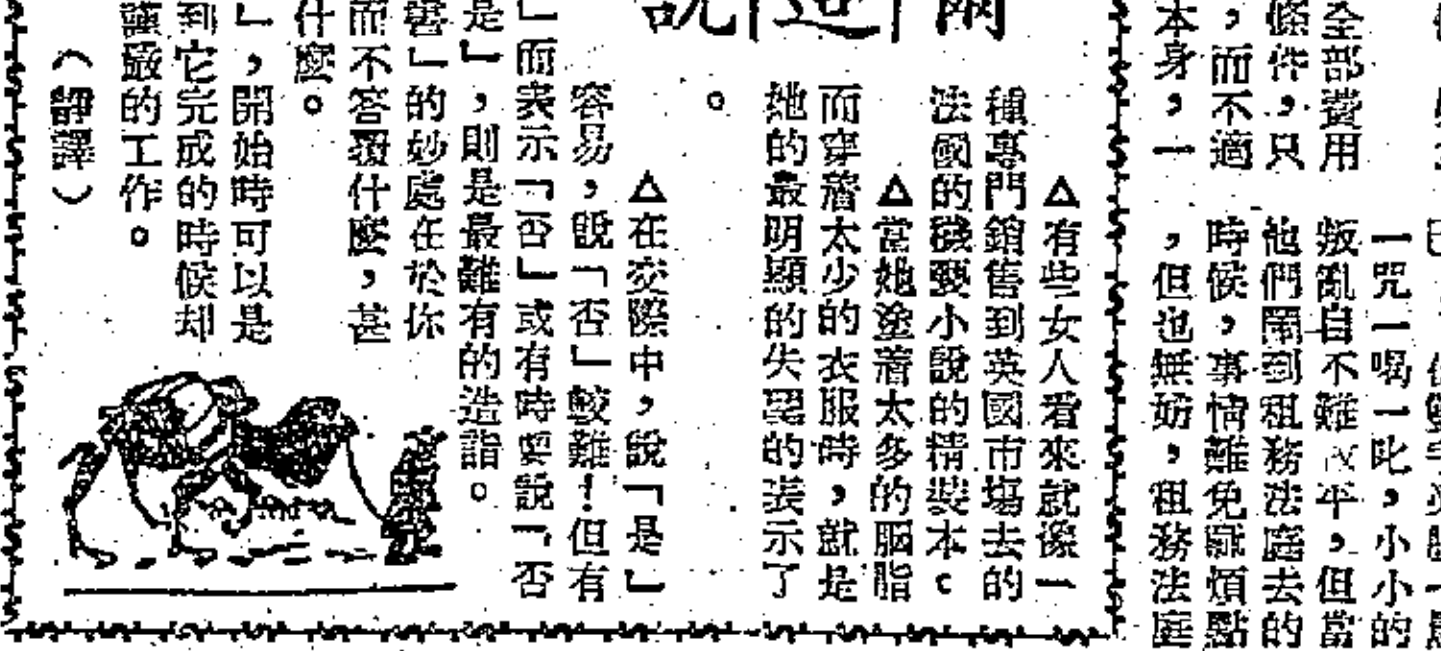 全部費用
條件，只
，而不適
本身，一
一咒一喝一叱，小小的
叛亂自不難 平，但當
他們鬧到租務法庭去的
時候，事情難免麻煩點
，但也無妨，租務法庭
爾造說
△有些女人看來就像一
種專門銷售到英國市塲去的
法國的穢褻小說的精裝本。
△當她塗着太多的胭脂
而穿着太少的衣服時，就是
她的最明顯的失望的表示了
。
△在交際中，說「是」
容易，說「否」較難！但有
」而表示「否」或有時要說「否
是」，則是最難有的造詣。
書」的妙處在於你
而不答覆什麼，甚
什麼。
」，開始時可以是
到它完成的時候却
謹嚴的工作。
（靜譯）